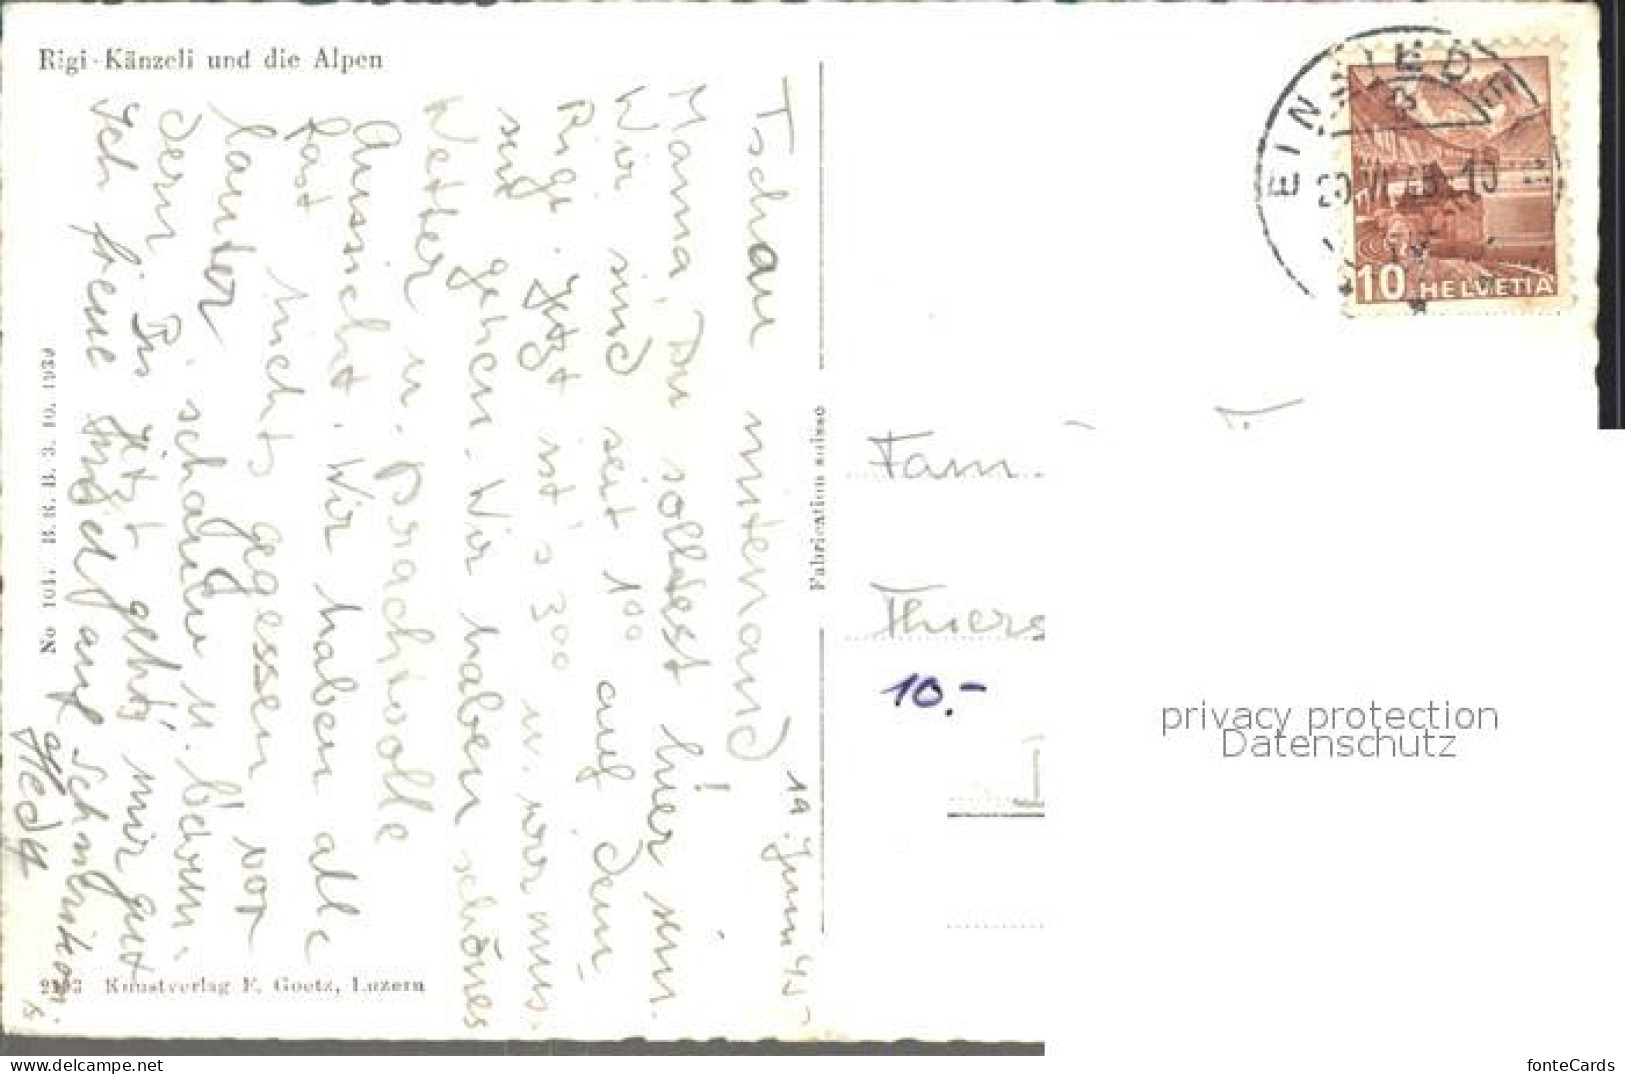 Rigi-Känzeli und die Alpen
EINSIEDELN
20.VI.45.10
10 HELVETIA
19. Juni 45
Tschau mitenand
Mama, Du solltest hier sein!
Wir sind seit 1⁰⁰ auf dem
Rigi. Jetzt ist's 3⁰⁰ u. wir müs-
sen gehen. Wir haben schönes
Wetter u. prachtvolle
Aussicht. Wir haben alle
fast nichts gegessen vor
lauter schauen u. bewun-
dern. Bis jetzt geht's mir gut
Ich freue mich auf
Hedy
Fabrication suisse
No 101. B.R.B. 3. 10. 1939
2193 Kunstverlag E. Goetz, Luzern
Fam.
Thiers
10.-
privacy protection
Datenschutz
fonteCards